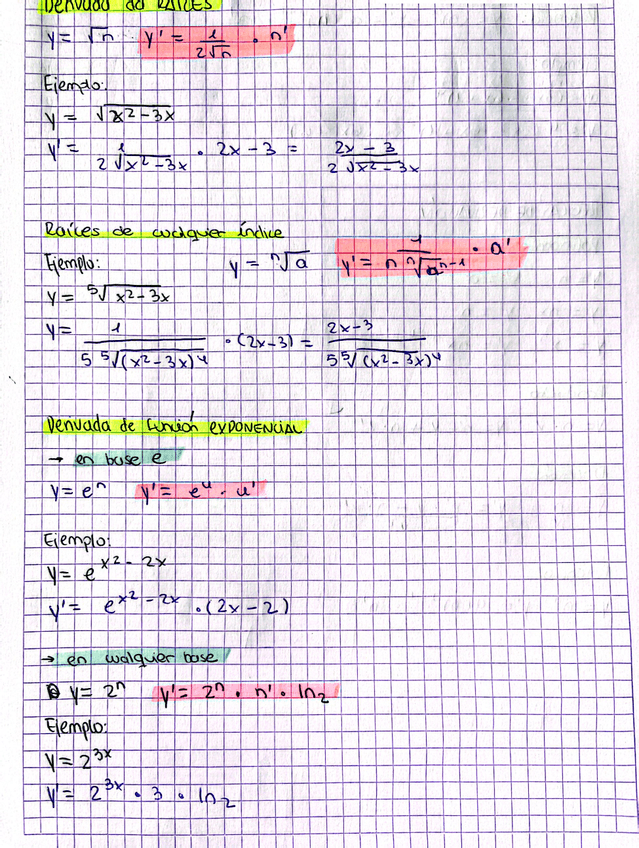 Derivada de RAÍCES
y = √n y' = 1/(2√n) · n'
Ejemplo:
y = √(x² - 3x)
y' = 1/(2√(x² - 3x)) · 2x - 3 = (2x - 3)/(2√(x² - 3x))
Raíces de cualquier índice
Ejemplo: y = ⁿ√a y' = 1/(n ⁿ√(aⁿ⁻¹)) · a'
y = ⁵√(x² - 3x)
y = 1/(5 ⁵√(x² - 3x)⁴) · (2x - 3) = (2x - 3)/(5 ⁵√(x² - 3x)⁴)
Derivada de función EXPONENCIAL
→ en base e
y = eⁿ y' = eᵘ · u'
Ejemplo:
y = e^(x² - 2x)
y' = e^(x² - 2x) · (2x - 2)
→ en cualquier base
y = 2ⁿ y' = 2ⁿ · n' · ln₂
Ejemplo:
y = 2^(3x)
y' = 2^(3x) · 3 · ln₂